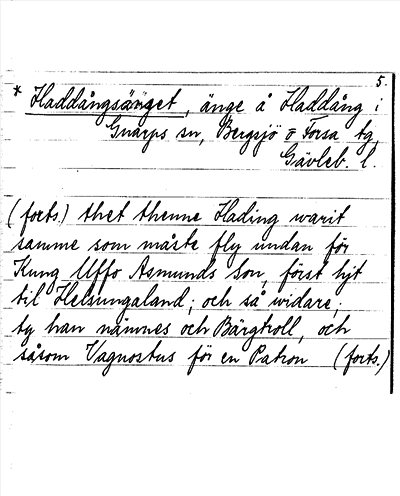 5.
* Haddångsänget, änge å Haddång i
Gnarps sn, Bergsjö o Forsa tg,
Gävleb. l.
(forts.) thet thenne Hading warit
samme som måste fly undan för
Kung Uffo Asmunds Son, först hjt
til Helsingaland; och så widare;
ty han nämnes och Bärgtroll, och
såsom Vagnostus för en Patron (forts.)